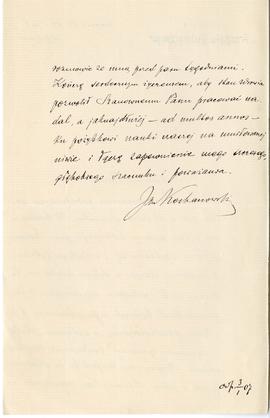 rozmowie ze mną przed paru tygodniami.
Kończę serdecznym życzeniem, aby stan zdrowia
pozwolił Szanownemu Panu pracować na-
dal, a jaknajdłużej – ad multos annos –
ku pożytkowi nauki naszej na umiłowanej
niwie i łączę zapewnienie mego
głębokiego szacunku i poważania.
Jan Kochanowski
odp. 3/1 07